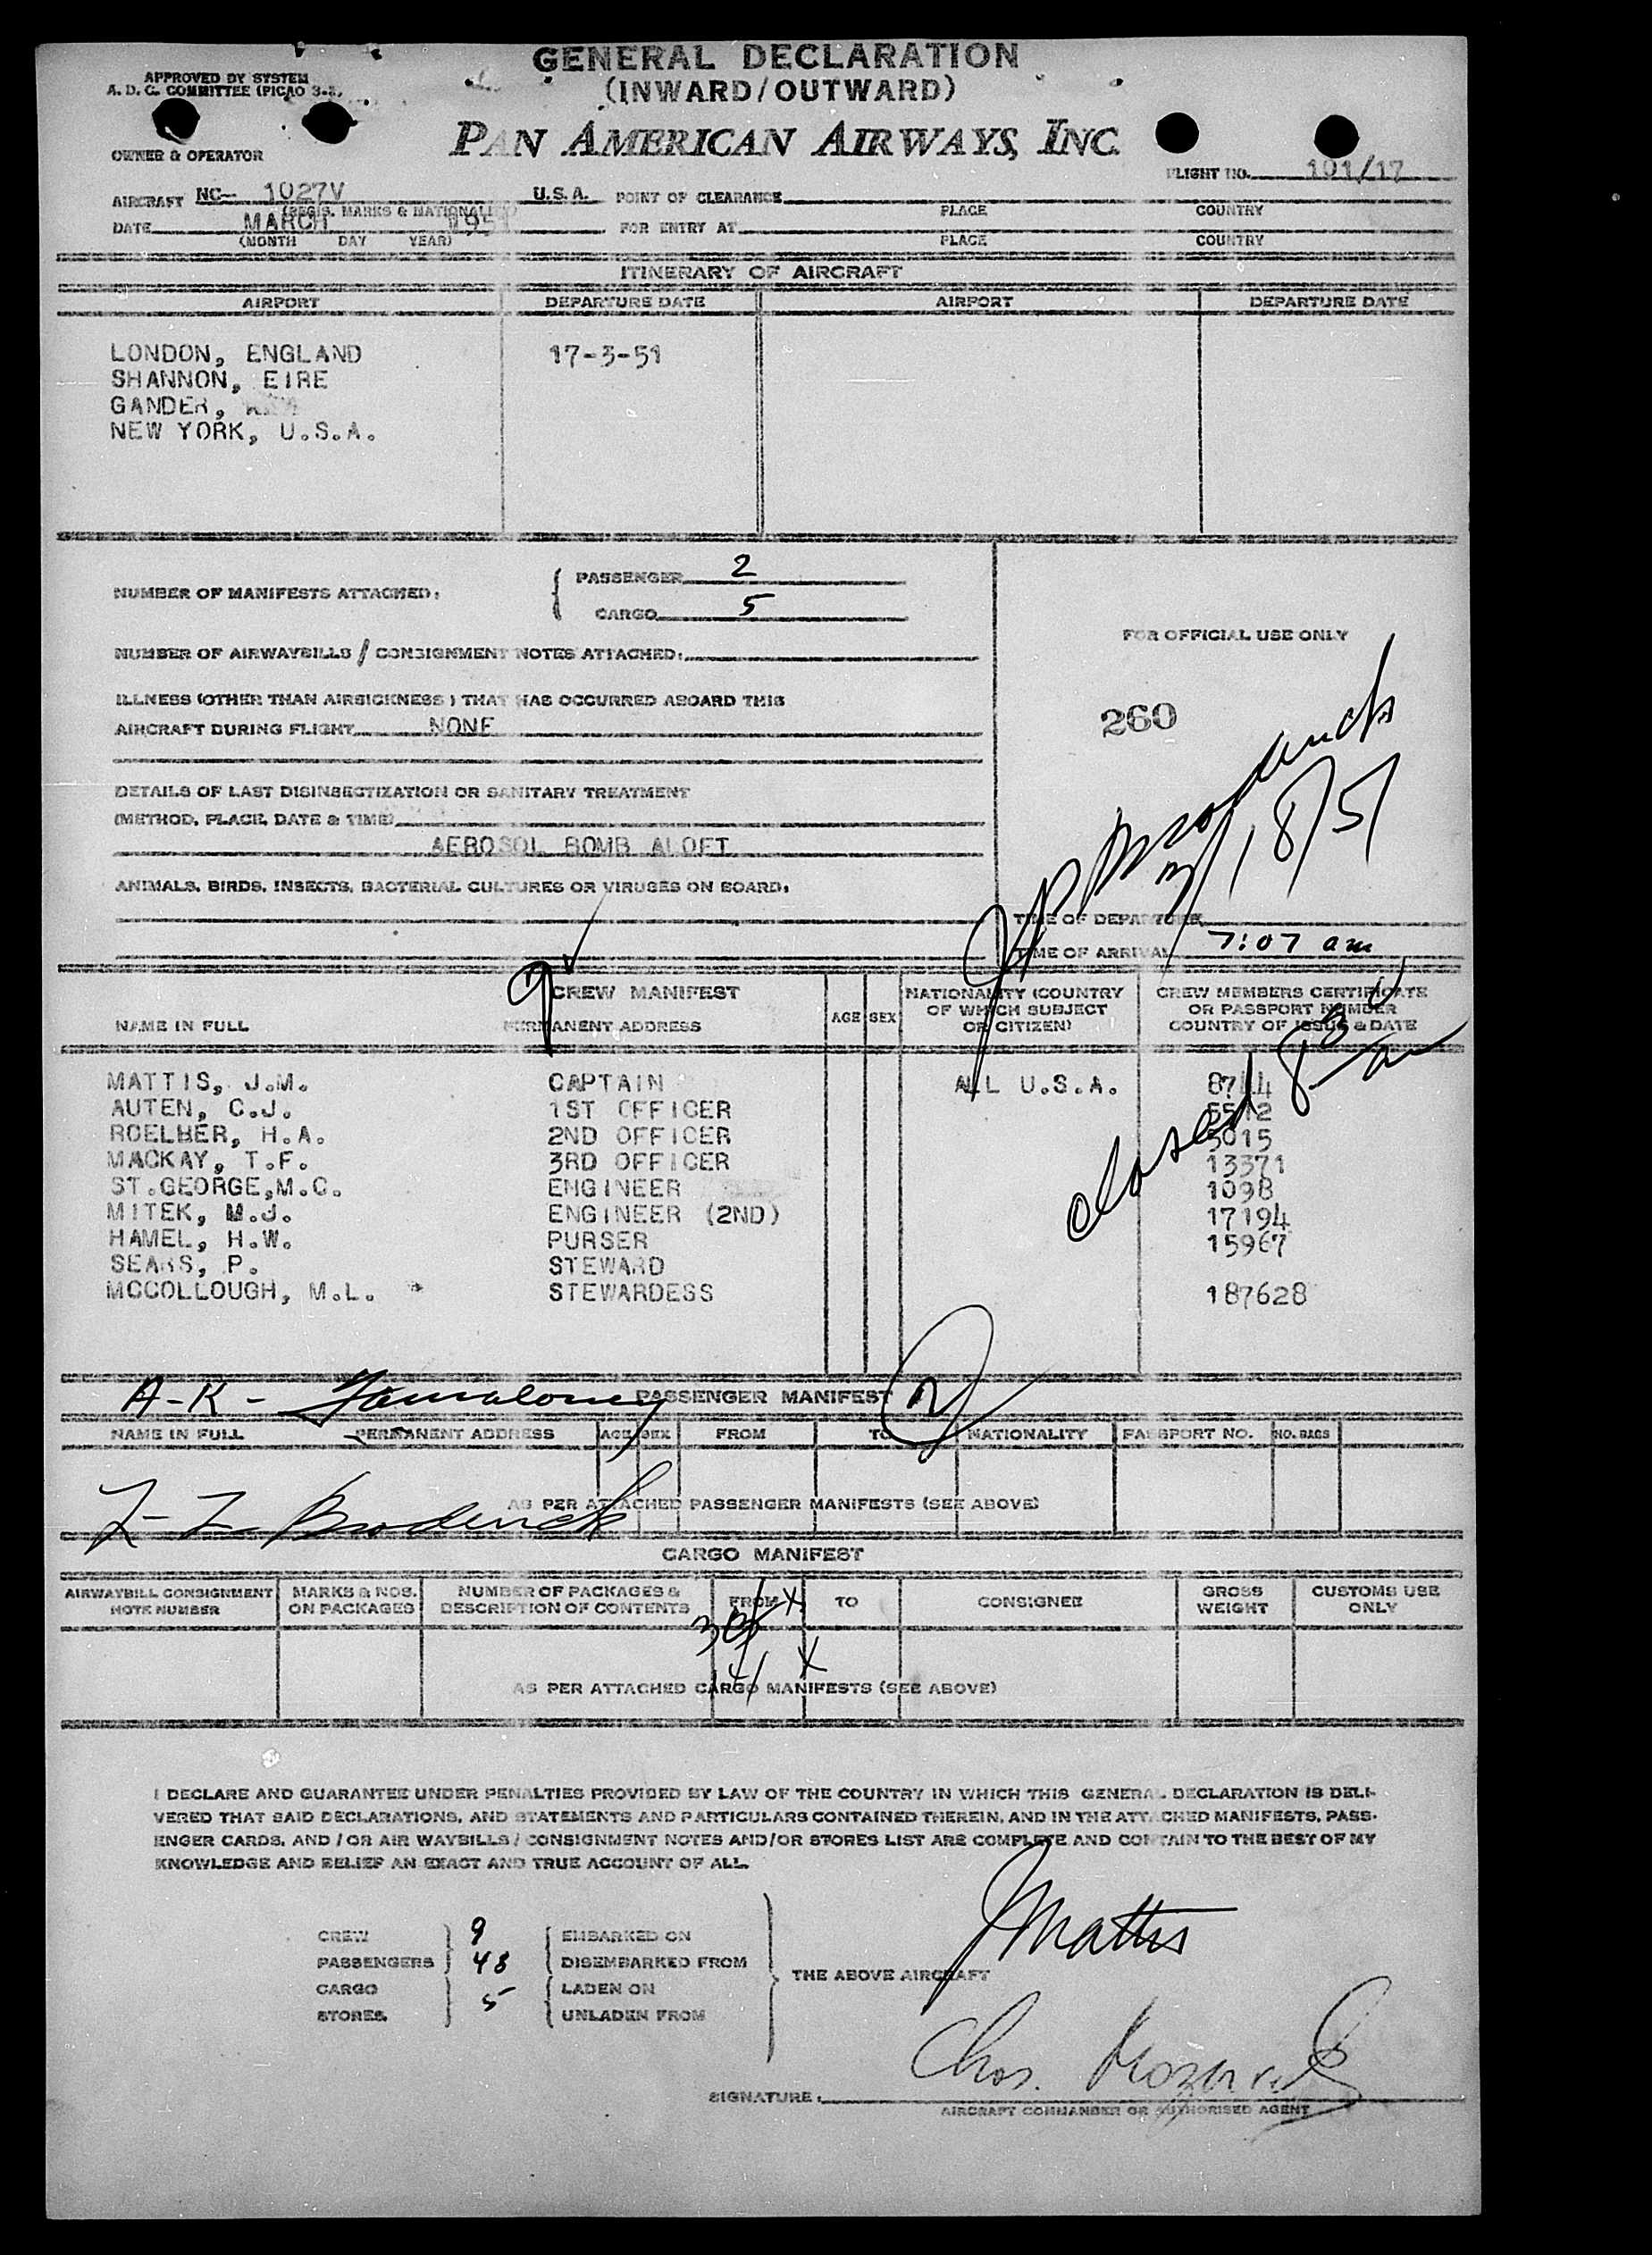 GENERAL DECLARATION
(INWARD/OUTWARD)
APPROVED BY SYSTEM
A. D. C. COMMITTEE (PICAO 3-1,
PAN AMERICAN AIRWAYS, INC.
OWNER & OPERATOR
FLIGHT NO. 101/17
AIRCRAFT NC- 1027V U.S.A. POINT OF CLEARANCE
(REGIS. MARKS & NATIONALITY) PLACE COUNTRY
DATE MARCH 1951 FOR ENTRY AT
(MONTH DAY YEAR) PLACE COUNTRY
ITINERARY OF AIRCRAFT
AIRPORT DEPARTURE DATE AIRPORT DEPARTURE DATE
LONDON, ENGLAND 17-3-51
SHANNON, EIRE
GANDER,
NEW YORK, U.S.A.
NUMBER OF MANIFESTS ATTACHED: { PASSENGER 2
CARGO 5
FOR OFFICIAL USE ONLY
NUMBER OF AIRWAYBILLS / CONSIGNMENT NOTES ATTACHED:
ILLNESS (OTHER THAN AIRSICKNESS) THAT HAS OCCURRED ABOARD THIS
AIRCRAFT DURING FLIGHT NONE
260
DETAILS OF LAST DISINSECTIZATION OR SANITARY TREATMENT
(METHOD, PLACE, DATE & TIME)
AEROSOL BOMB ALOFT
3/18/51
ANIMALS, BIRDS, INSECTS, BACTERIAL CULTURES OR VIRUSES ON BOARD:
TIME OF DEPARTURE
TIME OF ARRIVAL 7:07 am
9 CREW MANIFEST
NAME IN FULL PERMANENT ADDRESS AGE SEX NATIONALITY (COUNTRY OF WHICH SUBJECT OR CITIZEN) CREW MEMBERS CERTIFICATE OR PASSPORT NUMBER COUNTRY OF ISSUE & DATE
MATTIS, J.M. CAPTAIN ALL U.S.A. 8744
AUTEN, C.J. 1ST OFFICER 5512
ROELHER, H.A. 2ND OFFICER 5015
MACKAY, T.F. 3RD OFFICER 13371
ST.GEORGE,M.C. ENGINEER 1098
MITEK, M.J. ENGINEER (2ND) 17194
HAMEL, H.W. PURSER 15967
SEARS, P. STEWARD
MCCOLLOUGH, M.L. STEWARDESS 187628
closed 8 30 a
A-K - PASSENGER MANIFEST 2
NAME IN FULL PERMANENT ADDRESS AGE SEX FROM TO NATIONALITY PASSPORT NO. NO. BAGS
AS PER ATTACHED PASSENGER MANIFESTS (SEE ABOVE)
L-Z Broderick
CARGO MANIFEST
AIRWAYBILL CONSIGNMENT NOTE NUMBER MARKS & NOS. ON PACKAGES NUMBER OF PACKAGES & DESCRIPTION OF CONTENTS FROM TO CONSIGNEE GROSS WEIGHT CUSTOMS USE ONLY
AS PER ATTACHED CARGO MANIFESTS (SEE ABOVE)
I DECLARE AND GUARANTEE UNDER PENALTIES PROVIDED BY LAW OF THE COUNTRY IN WHICH THIS GENERAL DECLARATION IS DELI-
VERED THAT SAID DECLARATIONS, AND STATEMENTS AND PARTICULARS CONTAINED THEREIN, AND IN THE ATTACHED MANIFESTS, PASS-
ENGER CARDS, AND / OR AIR WAYBILLS / CONSIGNMENT NOTES AND/OR STORES LIST ARE COMPLETE AND CONTAIN TO THE BEST OF MY
KNOWLEDGE AND BELIEF AN EXACT AND TRUE ACCOUNT OF ALL.
CREW 9 EMBARKED ON
PASSENGERS 48 DISEMBARKED FROM
THE ABOVE AIRCRAFT
CARGO 5 LADEN ON
STORES. UNLADEN FROM
JMattis
Chos.
SIGNATURE:
AIRCRAFT COMMANDER OR AUTHORISED AGENT